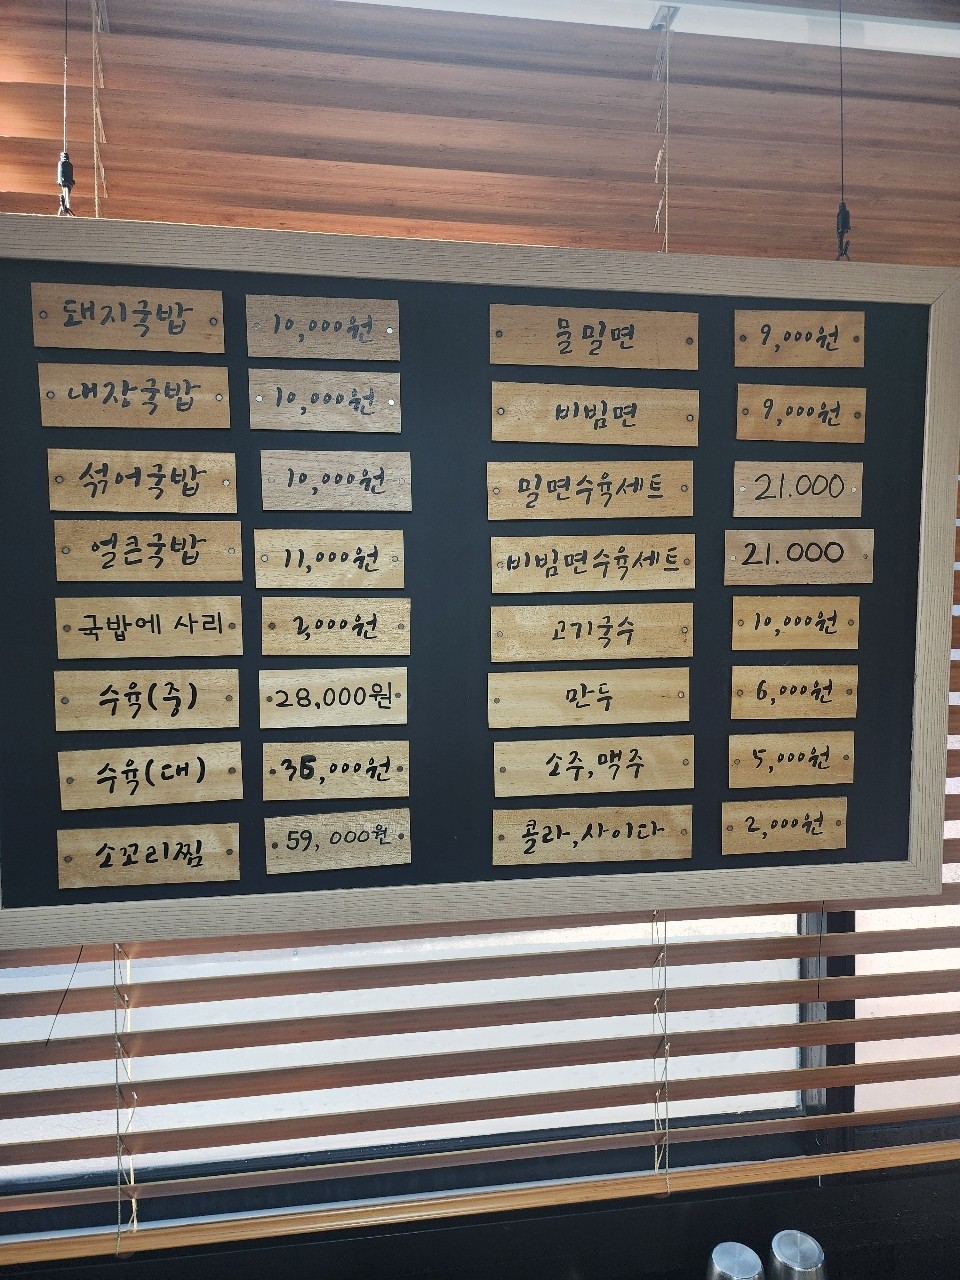 돼지국밥 10,000원
내장국밥 10,000원
섞어국밥 10,000원
얼큰국밥 11,000원
국밥에 사리 2,000원
수육(중) 28,000원
수육(대) 35,000원
소꼬리찜 59,000원
물밀면 9,000원
비빔면 9,000원
밀면수육세트 21.000
비빔면수육세트 21.000
고기국수 10,000원
만두 6,000원
소주,맥주 5,000원
콜라,사이다 2,000원